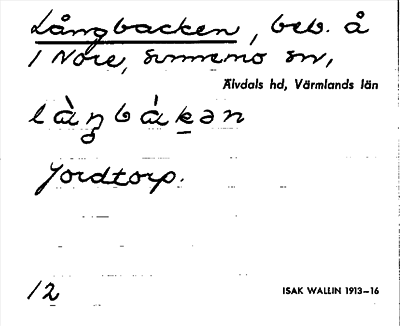 Långbacken, beb. å
1 Nore, Sunnemo sn,
Älvdals hd, Värmlands län
làŋbàkən
Jordtorp.
12
ISAK WALLIN 1913–16